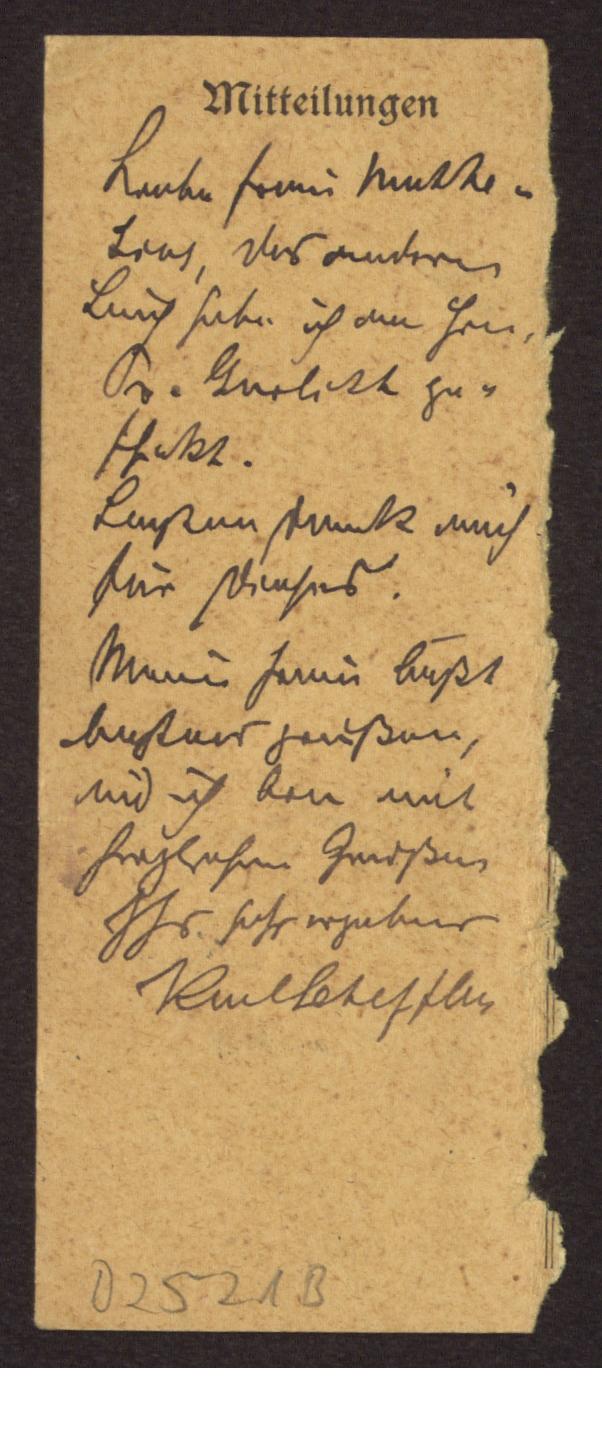 Mitteilungen
Liebe Frau Muthe-
sius, das andere
Buch habe ich an Herrn
Dr. Gurlitt ge-
schickt.
Besten Dank auch
für dieses.
Meine Frau läßt
bestens grüßen,
und ich bin mit
herzlichen Grüßen
Ihr sehr ergebener
Karl Scheffler
D2521B